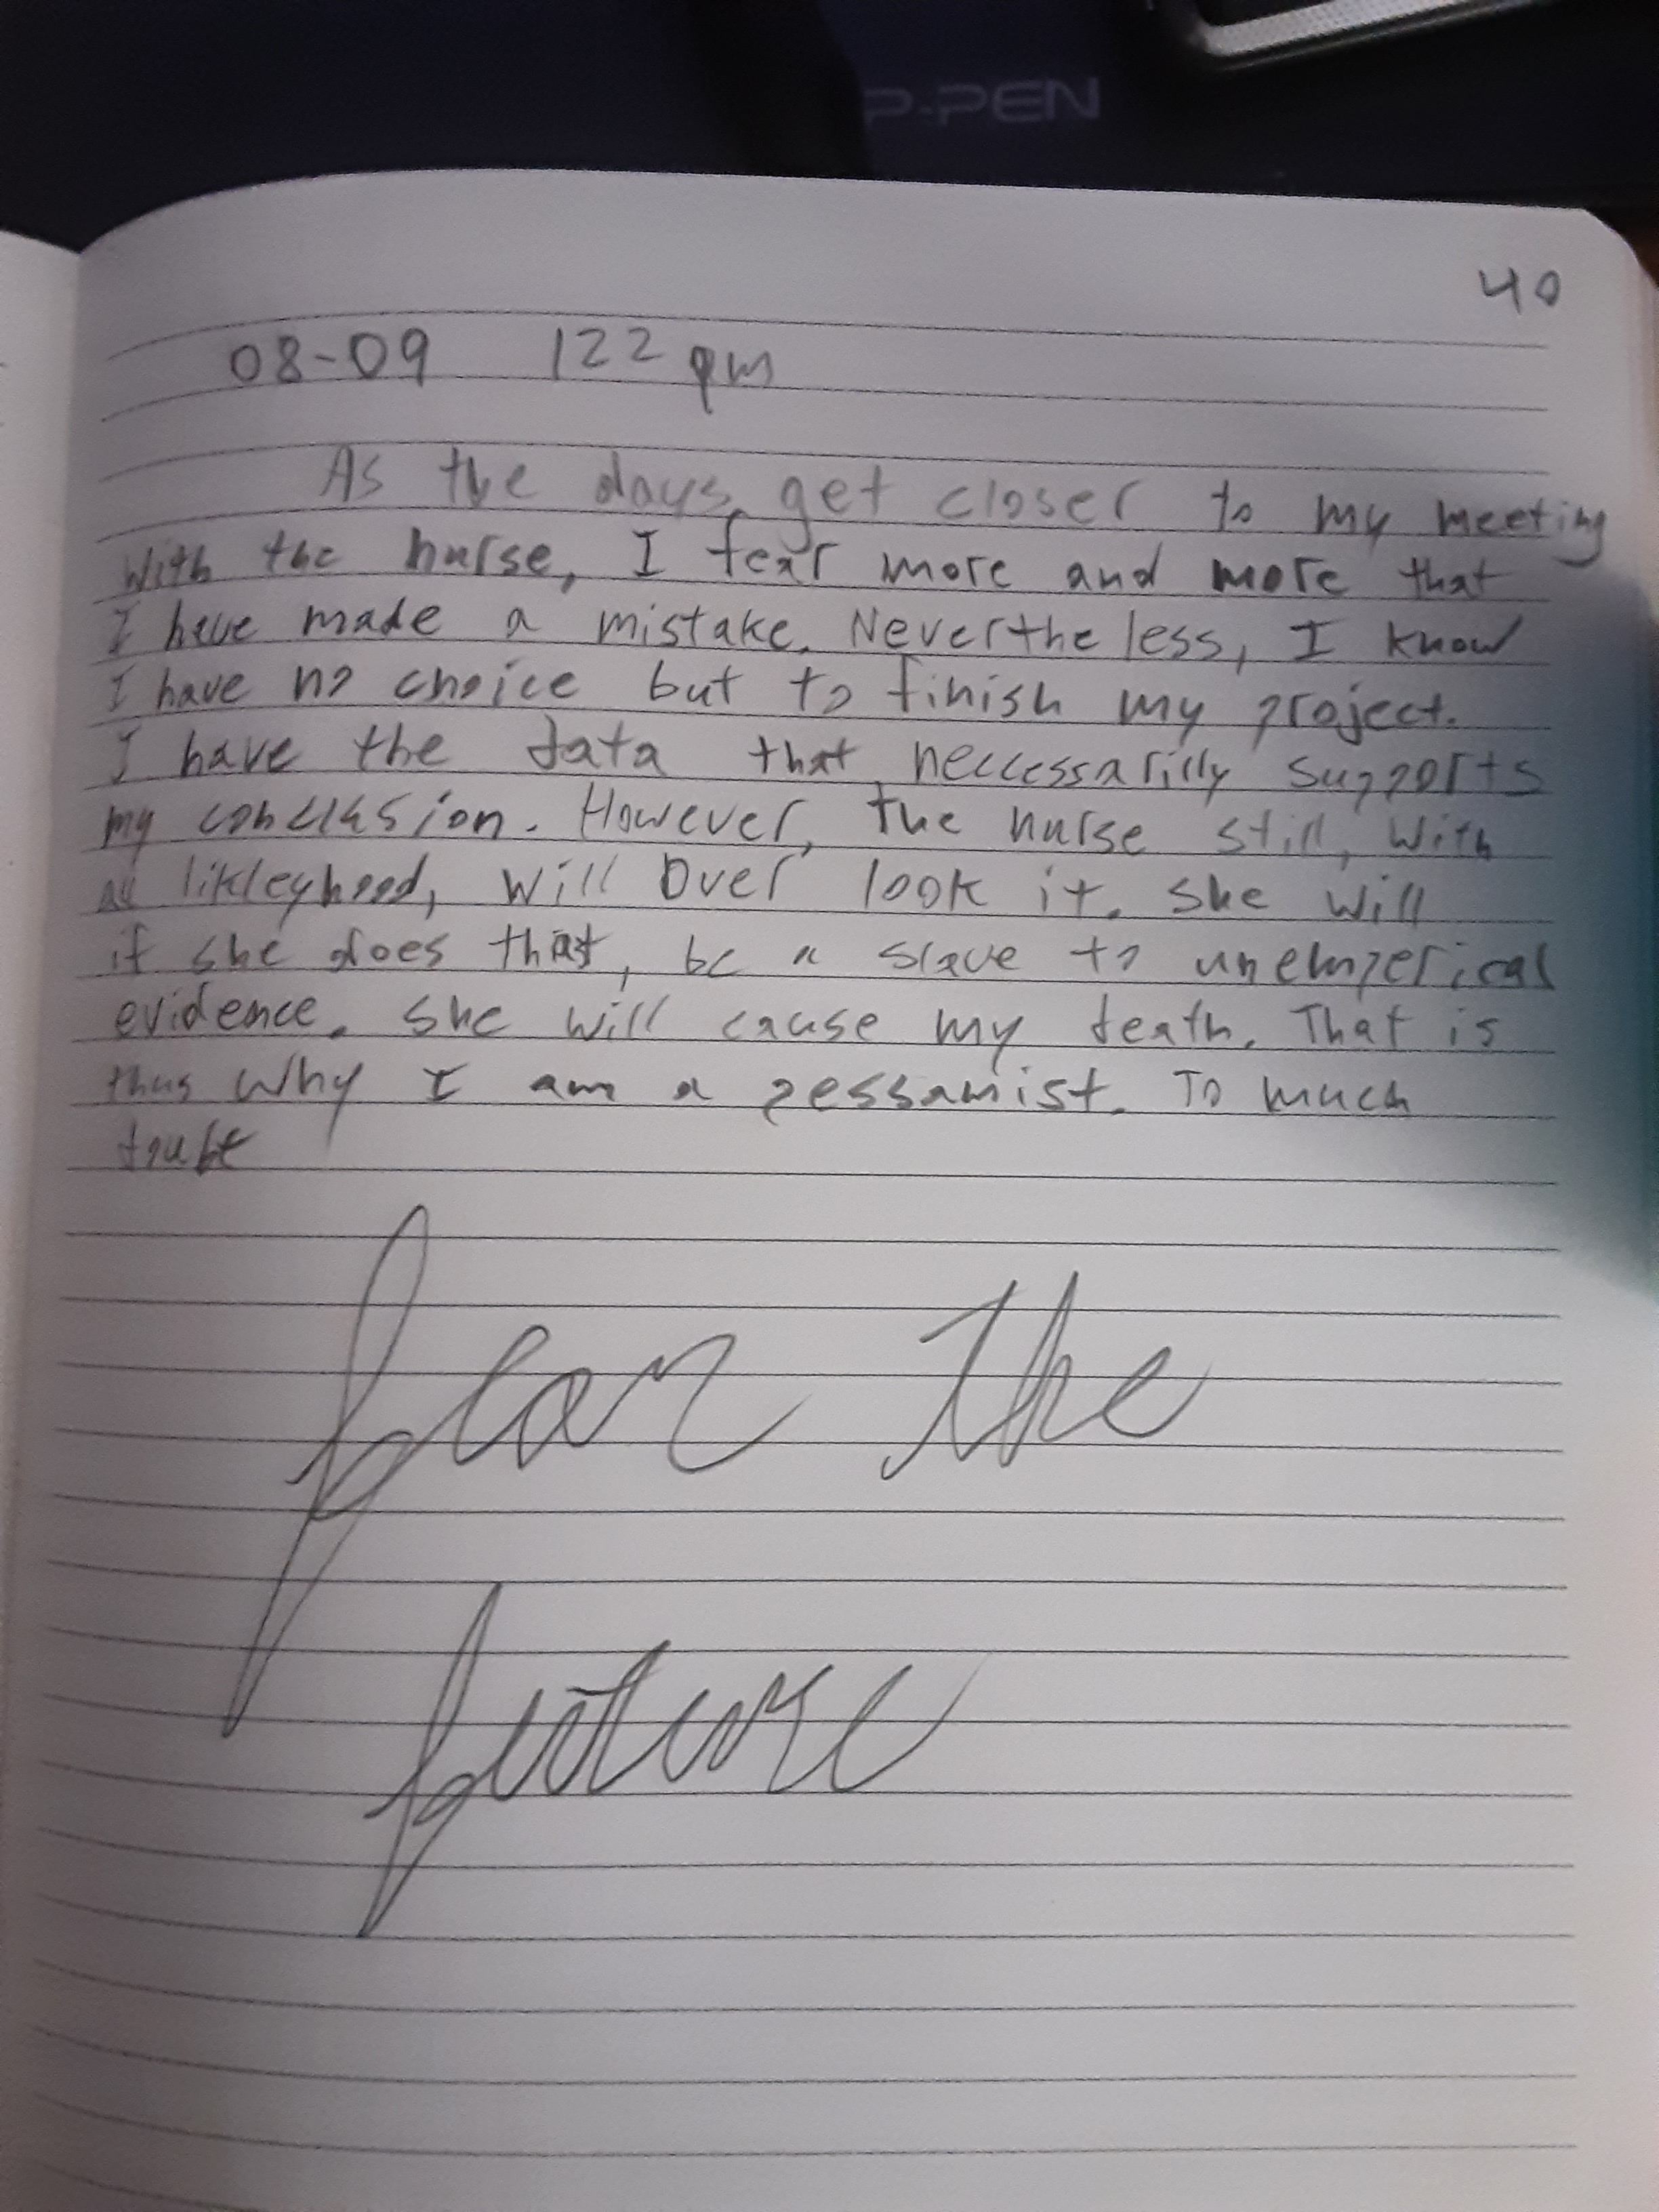 P-PEN
40
08-09 122 pm
As the days get closer to my meeting
with the nurse, I fear more and more that
I have made a mistake. Nevertheless, I know
I have no choice but to finish my project.
I have the data that neccessarilly supports
my conclusion. However, the nurse still, with
all likleyhood, will over look it. She will
if she does that, be a slave to unemperical
evidence. She will cause my death. That is
thus why I am a pessamist. To much
doubt
fear the
future